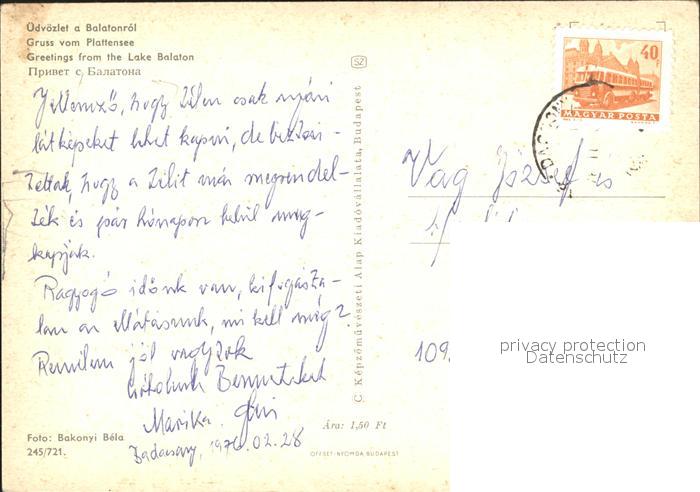 Üdvözlet a Balatonról
Gruss vom Plattensee
Greetings from the Lake Balaton
Привет с Балатона
Jellemző, hogy télen csak nyári
látképeket lehet kapni, de biztosí-
tottak, hogy a télit már megrendel-
ték és pár hónapon belül meg-
kapják.
Ragyogó időnk van, kifogásta-
lan az ellátásunk, mi kell még?
Remélem jól vagytok
Csókolunk Benneteket
Marika
Badacsony, 1976.02.28
Foto: Bakonyi Béla
245/721.
SZ
C. Képzőművészeti Alap Kiadóvállalata, Budapest
Ára: 1,50 Ft
OFFSET-NYOMDA BUDAPEST
40 f
MAGYAR POSTA
Vág József és
109.
privacy protection
Datenschutz